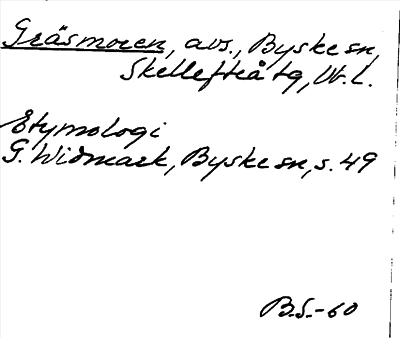 Gräsmoren, avs., Byske sn,
Skellefteå tg, Vb. L.
Etymologi
G. Widmark, Byske sn, s. 49
B.S.-60